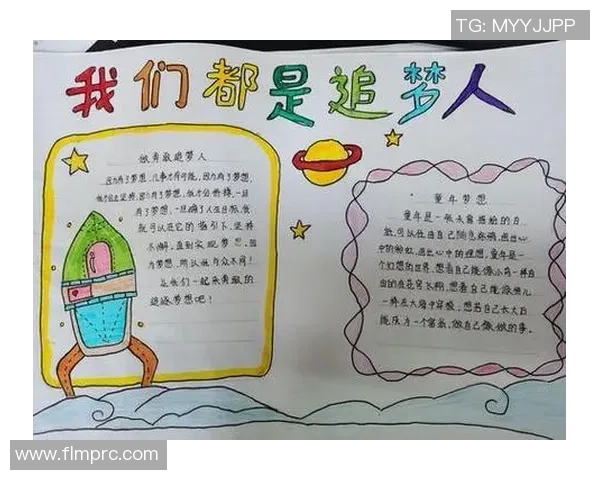 TG: MYYJJPP
我们都是追梦人
做勇敢追梦人
因为有了梦想,凡事才有可能,因为有了梦想,
他才会坚持,因为有了梦想,他才会拼搏,一旦
有了梦想,一旦确了人生目标,他
就可以在它的指引下,坚持
不懈,直到实现梦想。因
为梦想,所以我与众不同!
让我们一起来勇敢的
追逐梦想吧!
童年梦想
童年是一张未曾描绘的白
纸,可以任由自己随意涂鸦,画出心
中的彩虹,画出心中的理想,童年是一
个幻想的世界,想着自己能像小鸟一样自
由的在花穹飞翔,想着自己能像鱼儿
一样在大海中穿梭,想着自己长大后
能成为一个富翁,做自己想做的事。
www.flmprc.com